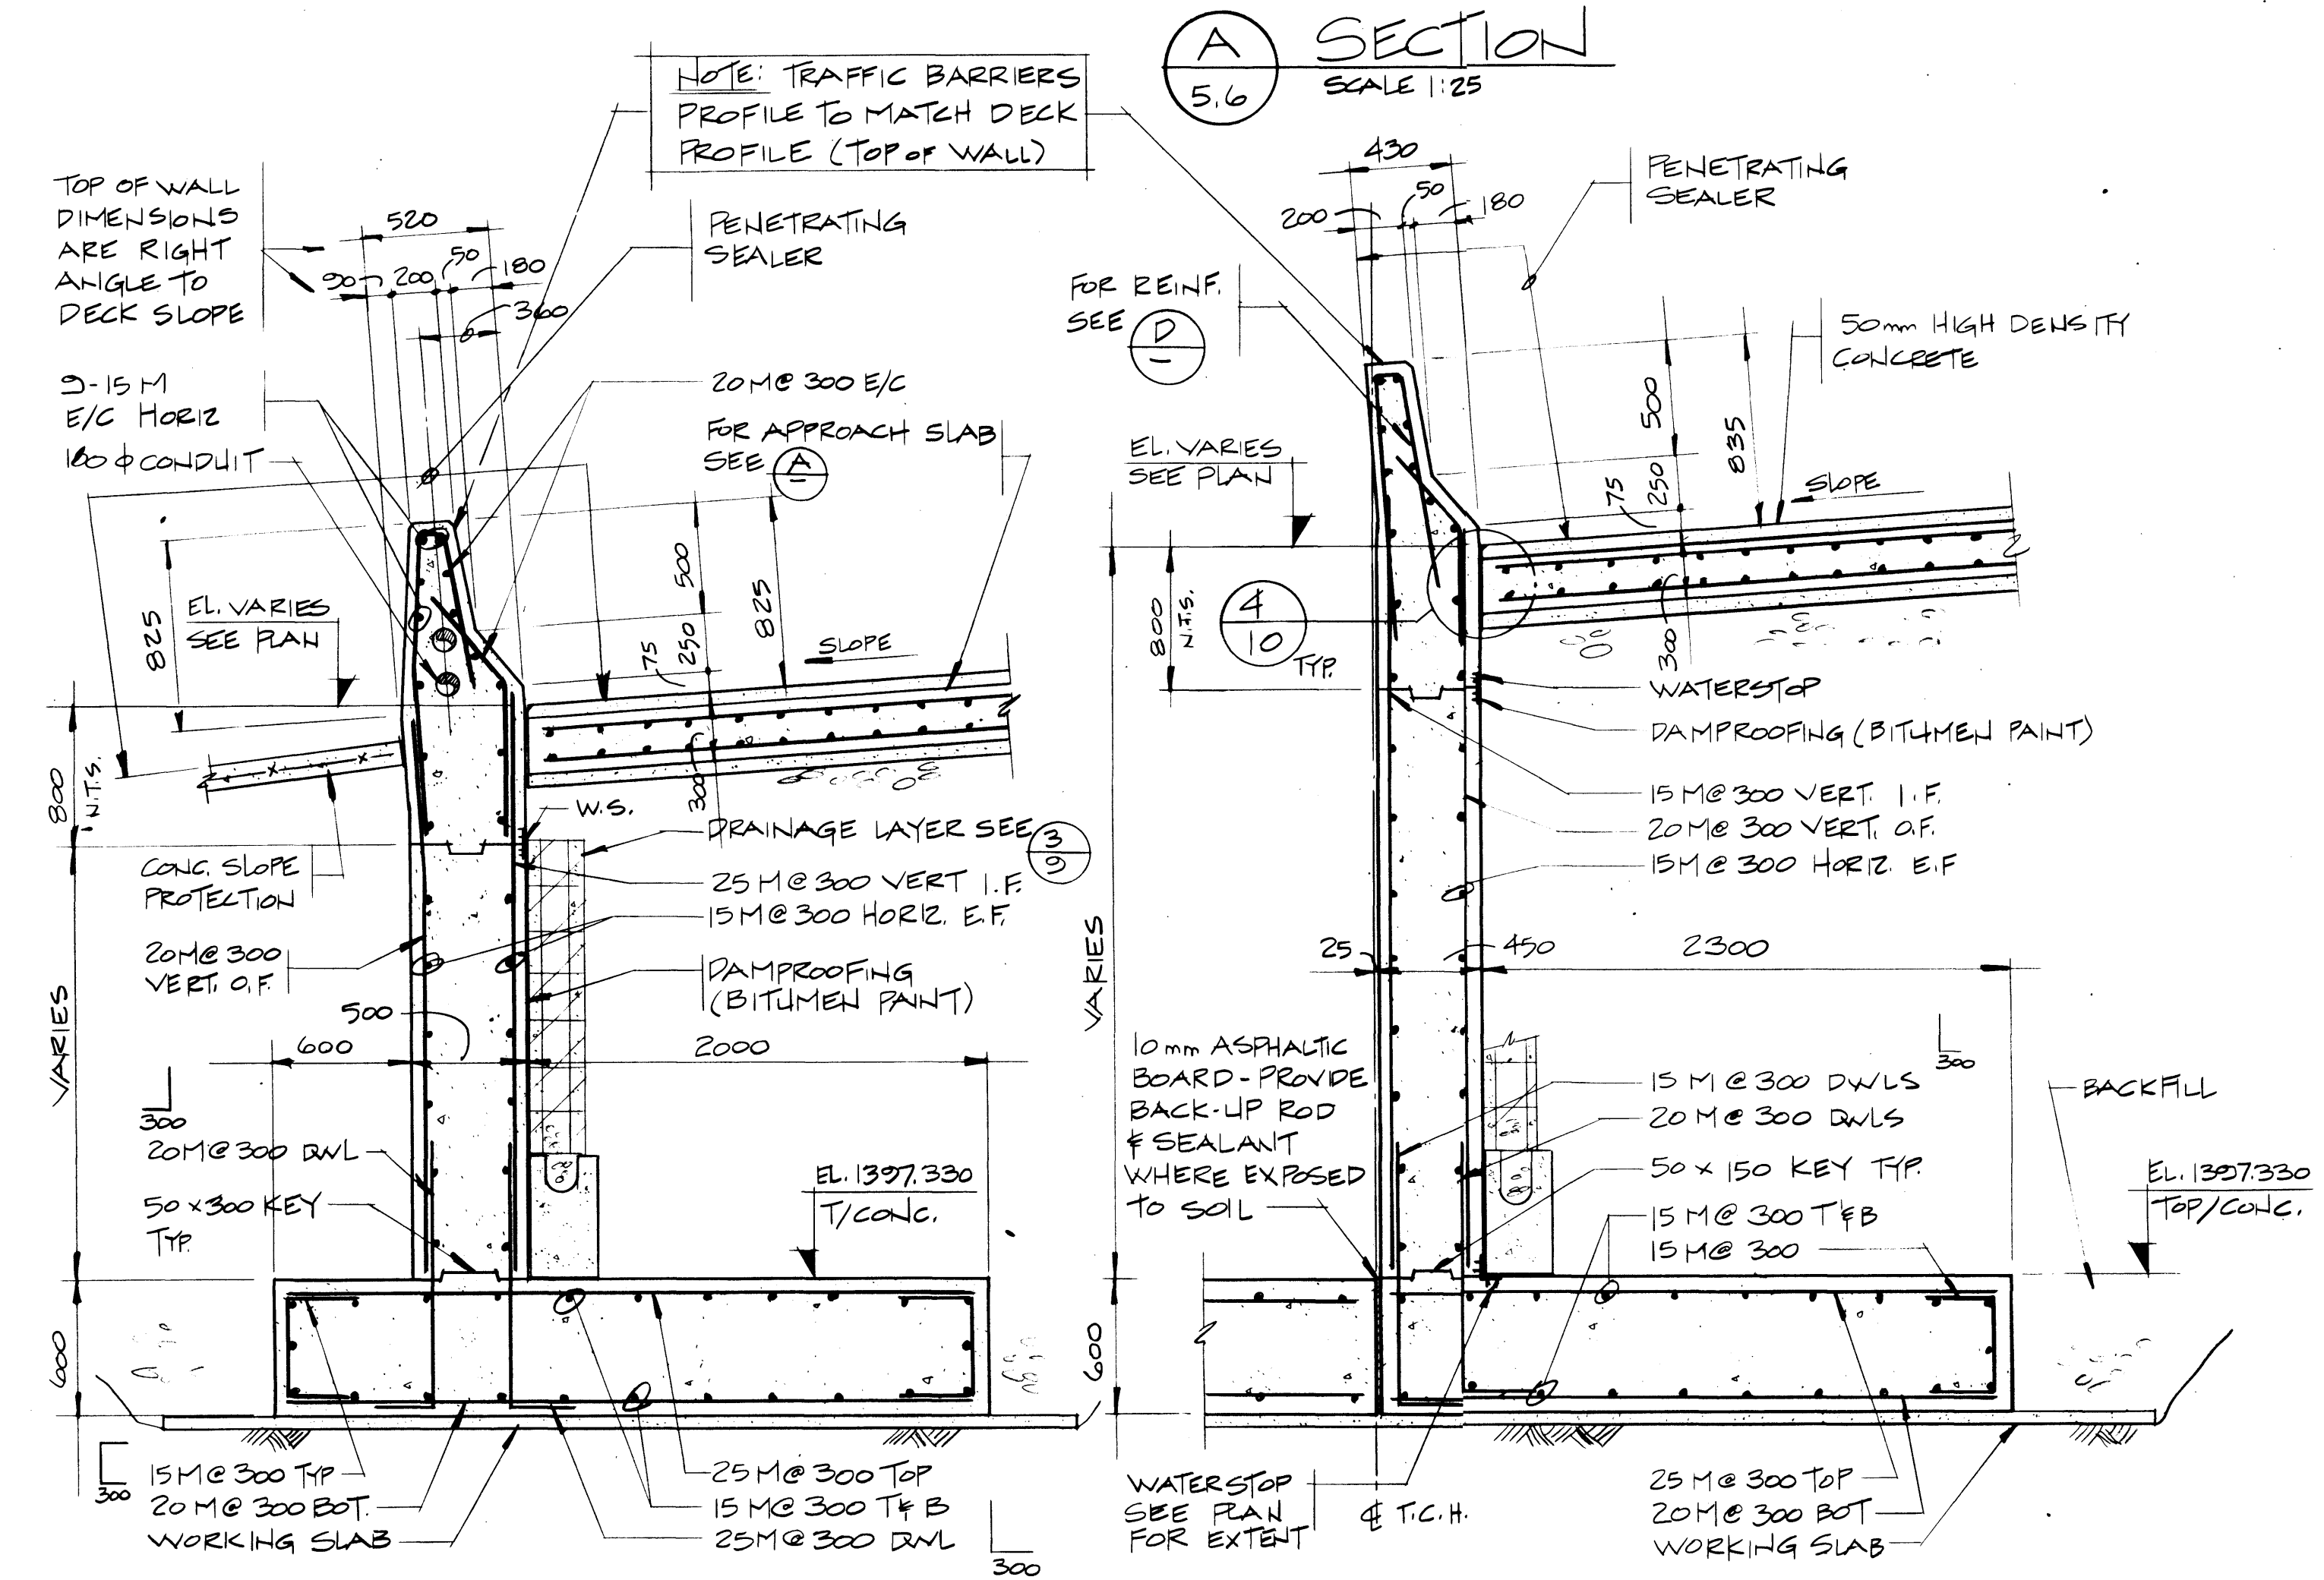 A
5.6
SECTION
SCALE 1:25
NOTE: TRAFFIC BARRIERS
PROFILE TO MATCH DECK
PROFILE (TOP OF WALL)
TOP OF WALL
DIMENSIONS
ARE RIGHT
ANGLE TO
DECK SLOPE
520
90
200
50
180
360
PENETRATING
SEALER
9-15M
E/C HORIZ
100 φ CONDUIT
20M@ 300 E/C
FOR APPROACH SLAB
SEE A
825
EL. VARIES
SEE PLAN
500
825
75
250
SLOPE
300
800
N.T.S.
W.S.
DRAINAGE LAYER SEE 3
9
CONC. SLOPE
PROTECTION
25M@300 VERT I.F.
15M@300 HORIZ. E.F.
20M@ 300
VERT. O.F.
DAMPROOFING
(BITUMEN PAINT)
VARIES
500
600
2000
300
20M@300 DWL
50 x 300 KEY
TYP.
EL. 1397.330
T/CONC.
600
300
15M@300 TYP
20M@300 BOT.
WORKING SLAB
25M@300 TOP
15M@300 T & B
25M@300 DWL
300
430
200
50
180
PENETRATING
SEALER
FOR REINF.
SEE D
50mm HIGH DENSITY
CONCRETE
EL. VARIES
SEE PLAN
500
835
75
250
SLOPE
800
N.T.S.
4
10
TYP.
300
WATERSTOP
DAMPROOFING (BITUMEN PAINT)
15M@300 VERT. I.F.
20M@300 VERT. O.F.
15M@300 HORIZ. E.F
VARIES
25
450
2300
10mm ASPHALTIC
BOARD-PROVIDE
BACK-UP ROD
& SEALANT
WHERE EXPOSED
TO SOIL
300
15M@300 DWLS
20M@300 DWLS
BACKFILL
50 x 150 KEY TYP.
15M@300 T&B
15M@300
EL. 1397.330
TOP/CONC.
600
WATERSTOP
SEE PLAN
FOR EXTENT
℄ T.C.H.
25M@300 TOP
20M@300 BOT
WORKING SLAB